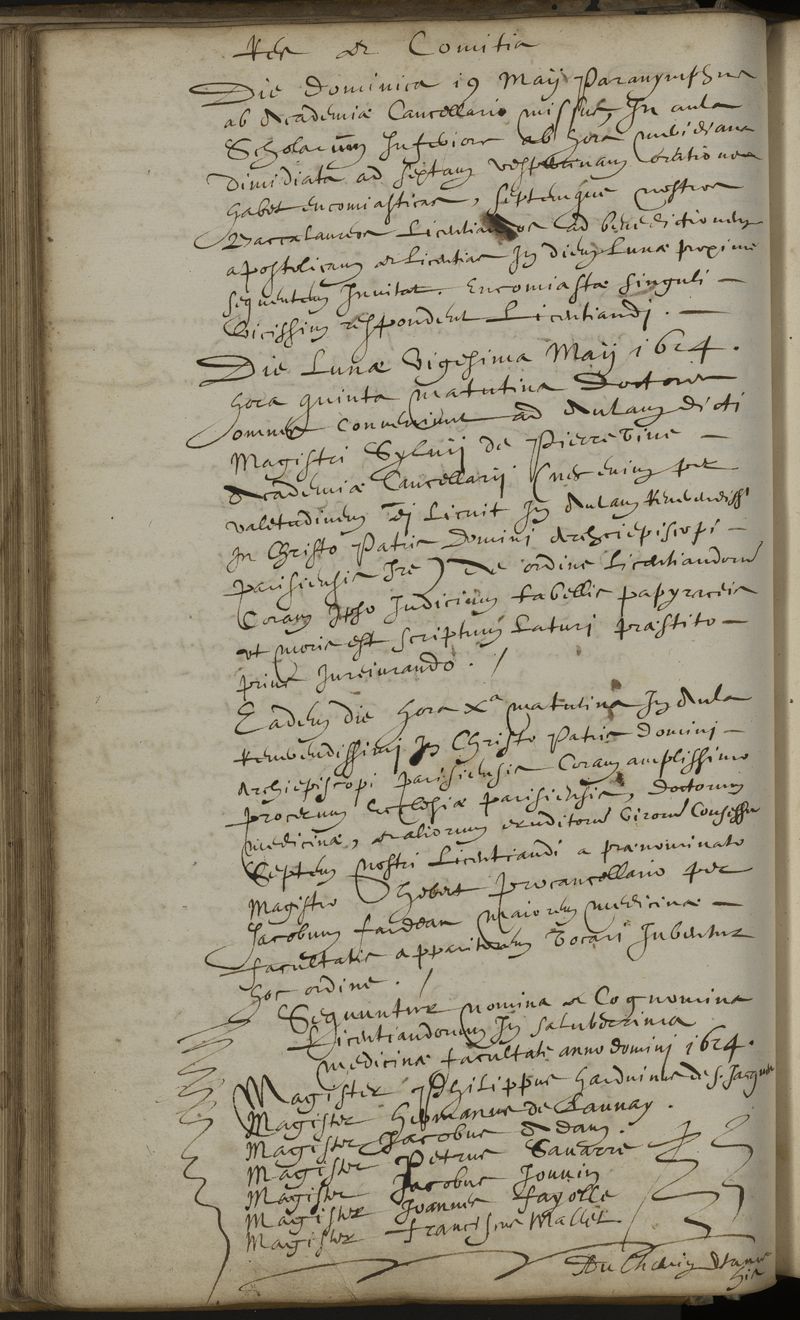 Res et Comitia
Die dominica 19 Maij Paranymphus
ab Academiæ Cancellario missus, In aula
Scholarum Inferiore ab hora meridiana
dimidiata ad sextam vespertinam orationes
habet encomiasticas, septemque nostros
Baccalaureos Licentiandos ad benedictionem
apostolicam et licentias In diem Lunæ proxime
sequentem Invitat. Encomiastæ singuli
vicissim respondent Licentiandj.
Die Lunæ Vigesima Maij 1624.
hora quinta matutina Doctores
omnes conveniunt ad Aulam dicti
Magistri Sylvij de Pierrevive
Academiæ Cancellarij (nec enim per
valetudinem ej licuit In Aulam Reverendissi
In Christo Patris Domini Archiepiscopi
parisiensis Ire) De ordine Licentiandorum
Coram Ipso Judicium tabellis papyraceis
ut moris est scriptum laturj præstito
prius Jureiurando. /
Eadem die hora Xa matutina In Aula
Reverendissimj In Christo Patris Dominj
Archiepiscopi parisiensis Coram amplissimo
procerum Ecclesiæ parisiensis, Doctorum
medicinæ, et aliorum eruditorum virorum Consessu
Septem nostri Licentiandi a prænominato
Magistro Thoert procancellario per
Jacobum fardeau maiorem medicinæ
facultatis apparitorem vocari Jubentur
hoc ordine. /
Sequuntur nomina et Cognomina
Licentiandorum In saluberrima
medicinæ facultate anno dominj 1624.
Magister Philippus harduinus de S. Jacques
Magister hermanus de Launay.
Magister Jacobus Adam.
Magister Petrus Savarre
Magister Jacobus Jouvin
Magister Joannes fayolle
Magister franciscus Mallet